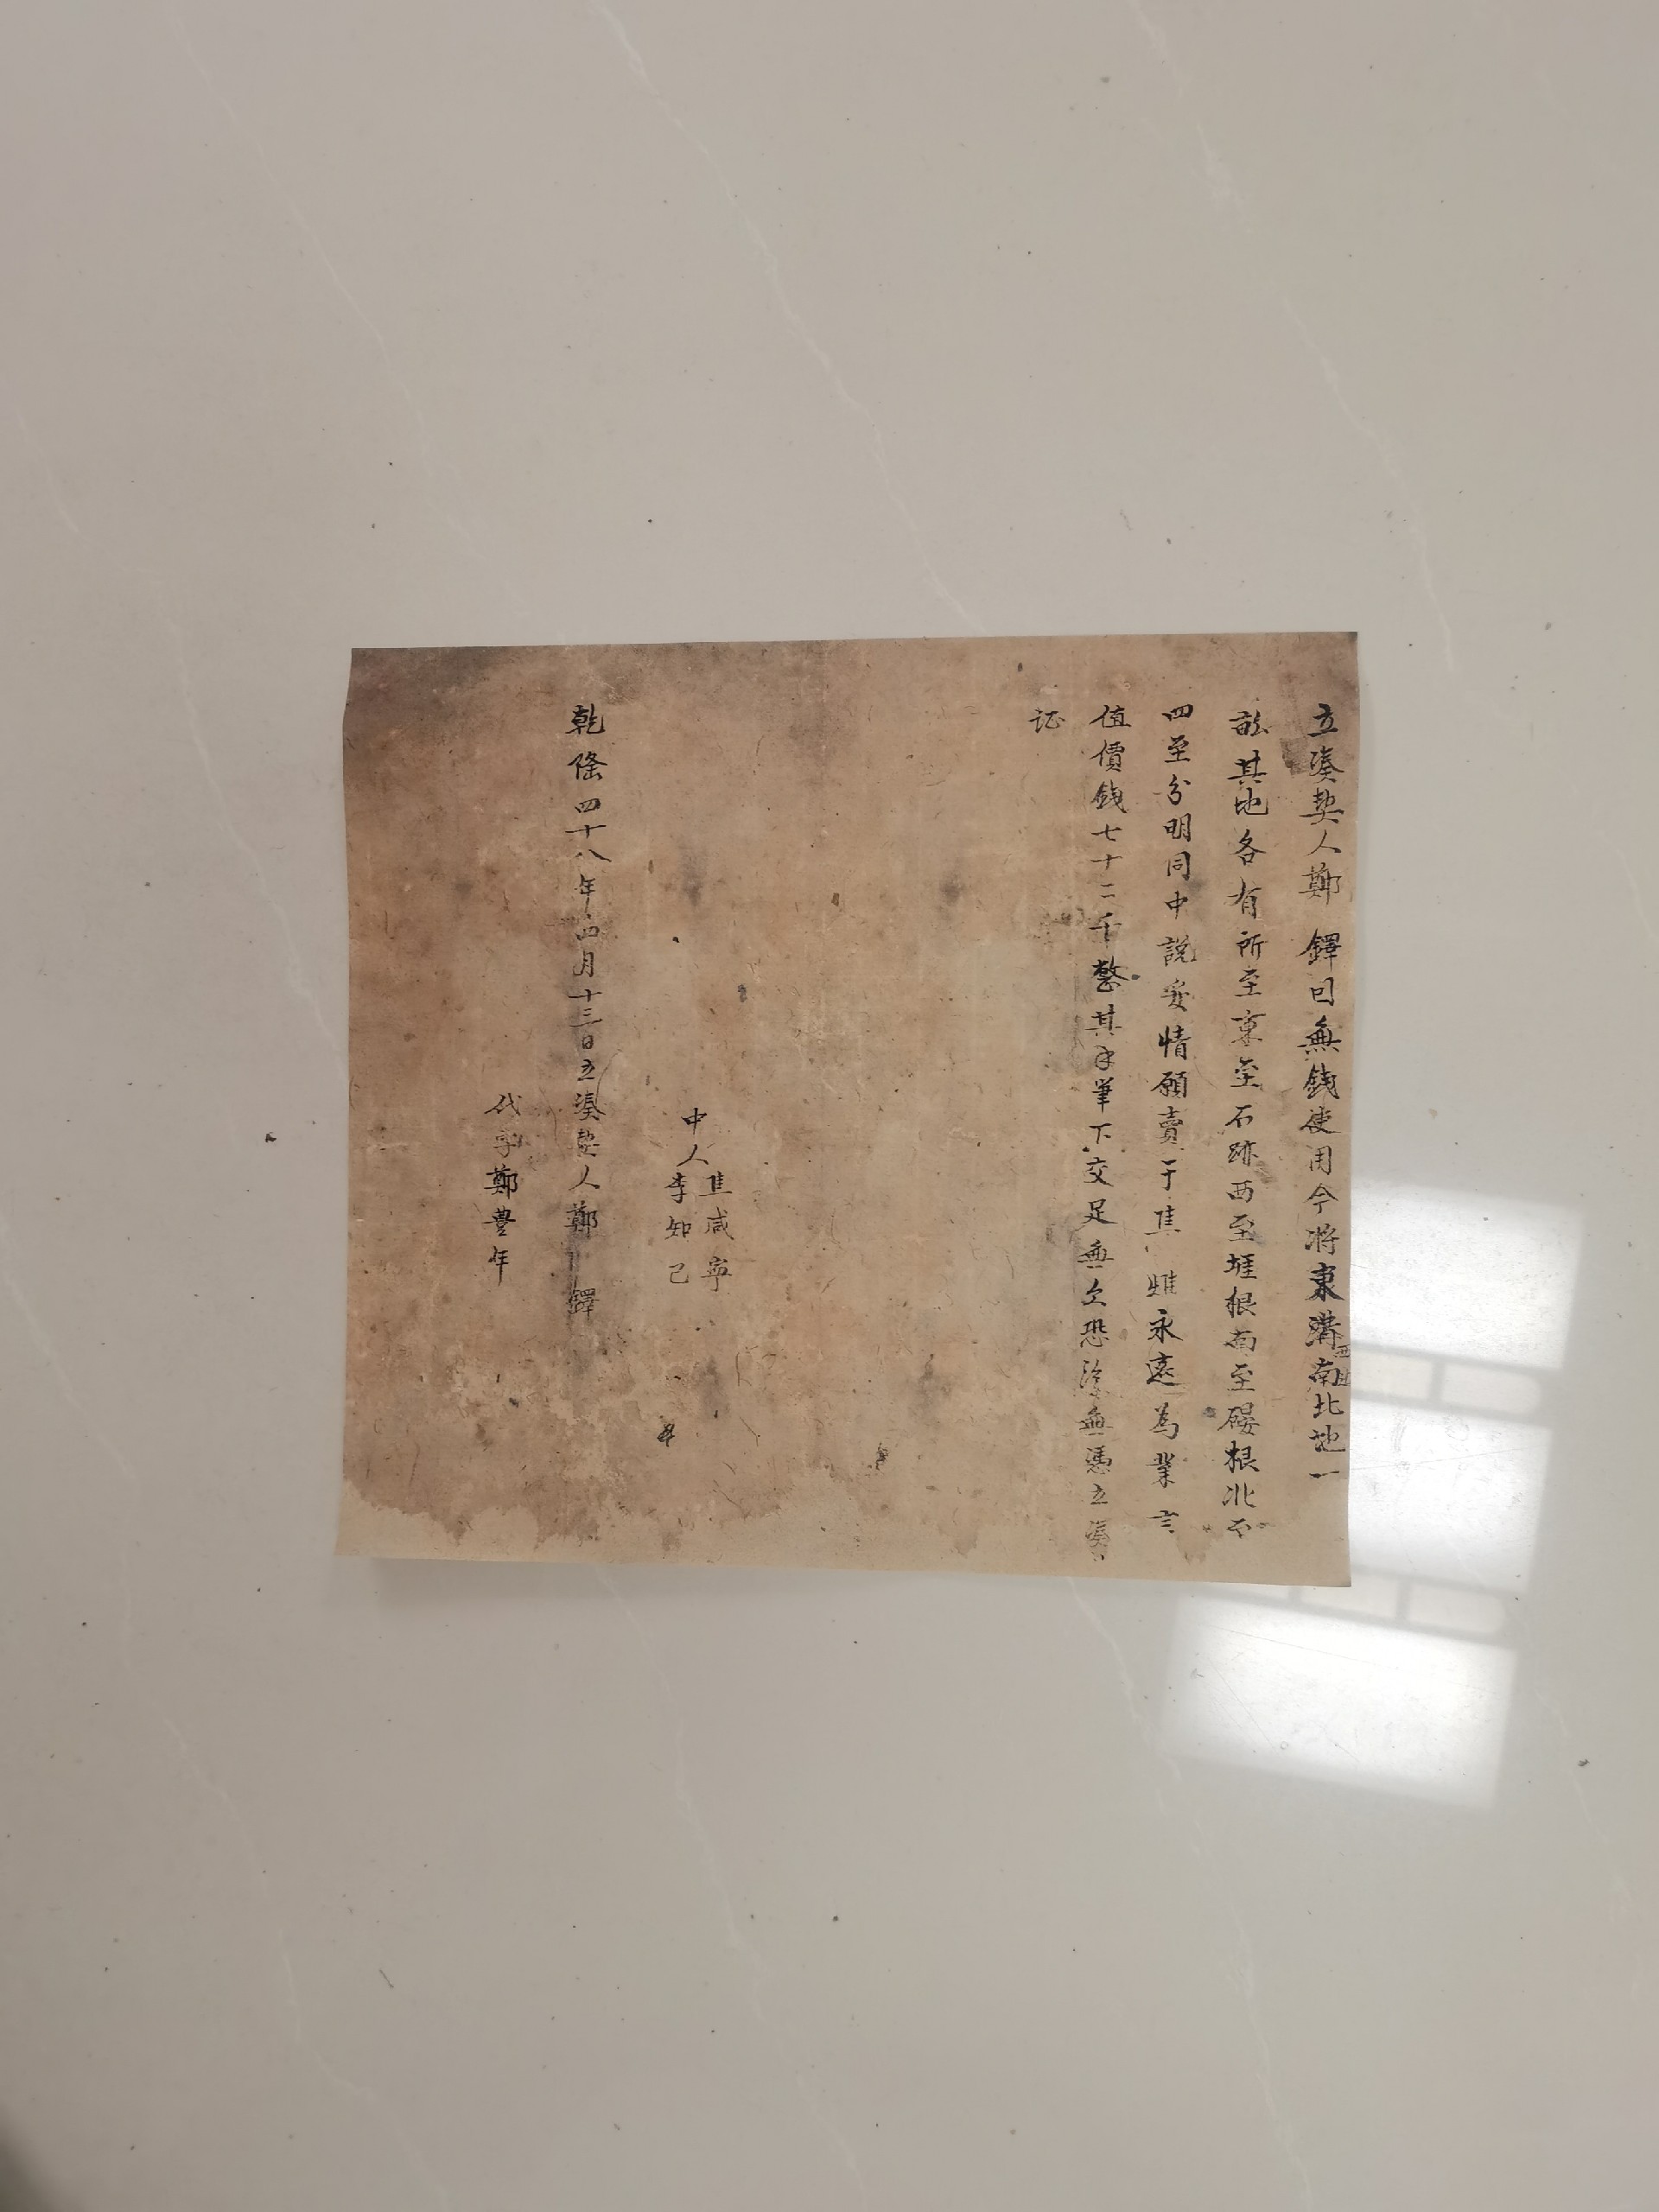 立湊契人鄭 鐸因無錢使用今將東溝南北地一
畝其地各有所至東至石跡西至堐根南至根北至
四至分明同中說妥情願賣于焦 永遠為業言
值價錢七十二千整其錢筆下交足無欠恐後無憑立湊
証
中人 焦咸寧
李知己
乾隆四十八年四月十三日立湊契人鄭 鐸
代字鄭豐年